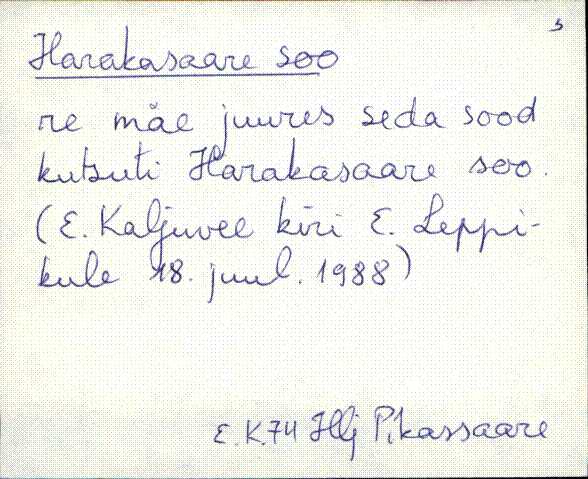 5
Harakasaare soo
re mäe juures seda sood
kutsuti Harakasaare soo.
(E. Kaljuvee kiri E. Leppi-
kule 18. juul. 1988)
E. K. 74 Hlj Pikassaare